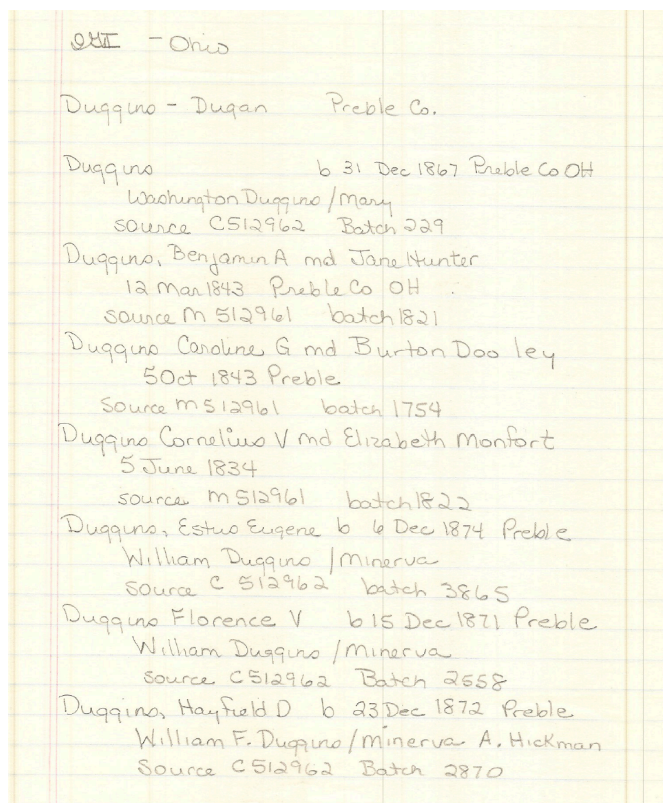 IGI - Ohio
Duggins - Dugan Preble Co.
Duggins b 31 Dec 1867 Preble Co OH
Washington Duggins / Mary
source C512962 Batch 229
Duggins, Benjamin A md Jane Hunter
12 Mar 1843 Preble Co OH
source M 512961 batch 1821
Duggins Caroline G md Burton Dooley
5 Oct 1843 Preble
source M512961 batch 1754
Duggins Cornelius V md Elizabeth Monfort
5 June 1834
source M512961 batch 1822
Duggins, Estus Eugene b 6 Dec 1874 Preble
William Duggins / Minerva
source C 512962 batch 3865
Duggins Florence V b 15 Dec 1871 Preble
William Duggins / Minerva
source C512962 Batch 2558
Duggins, Hayfield D b 23 Dec 1872 Preble
William F. Duggins / Minerva A. Hickman
source C512962 Batch 2870